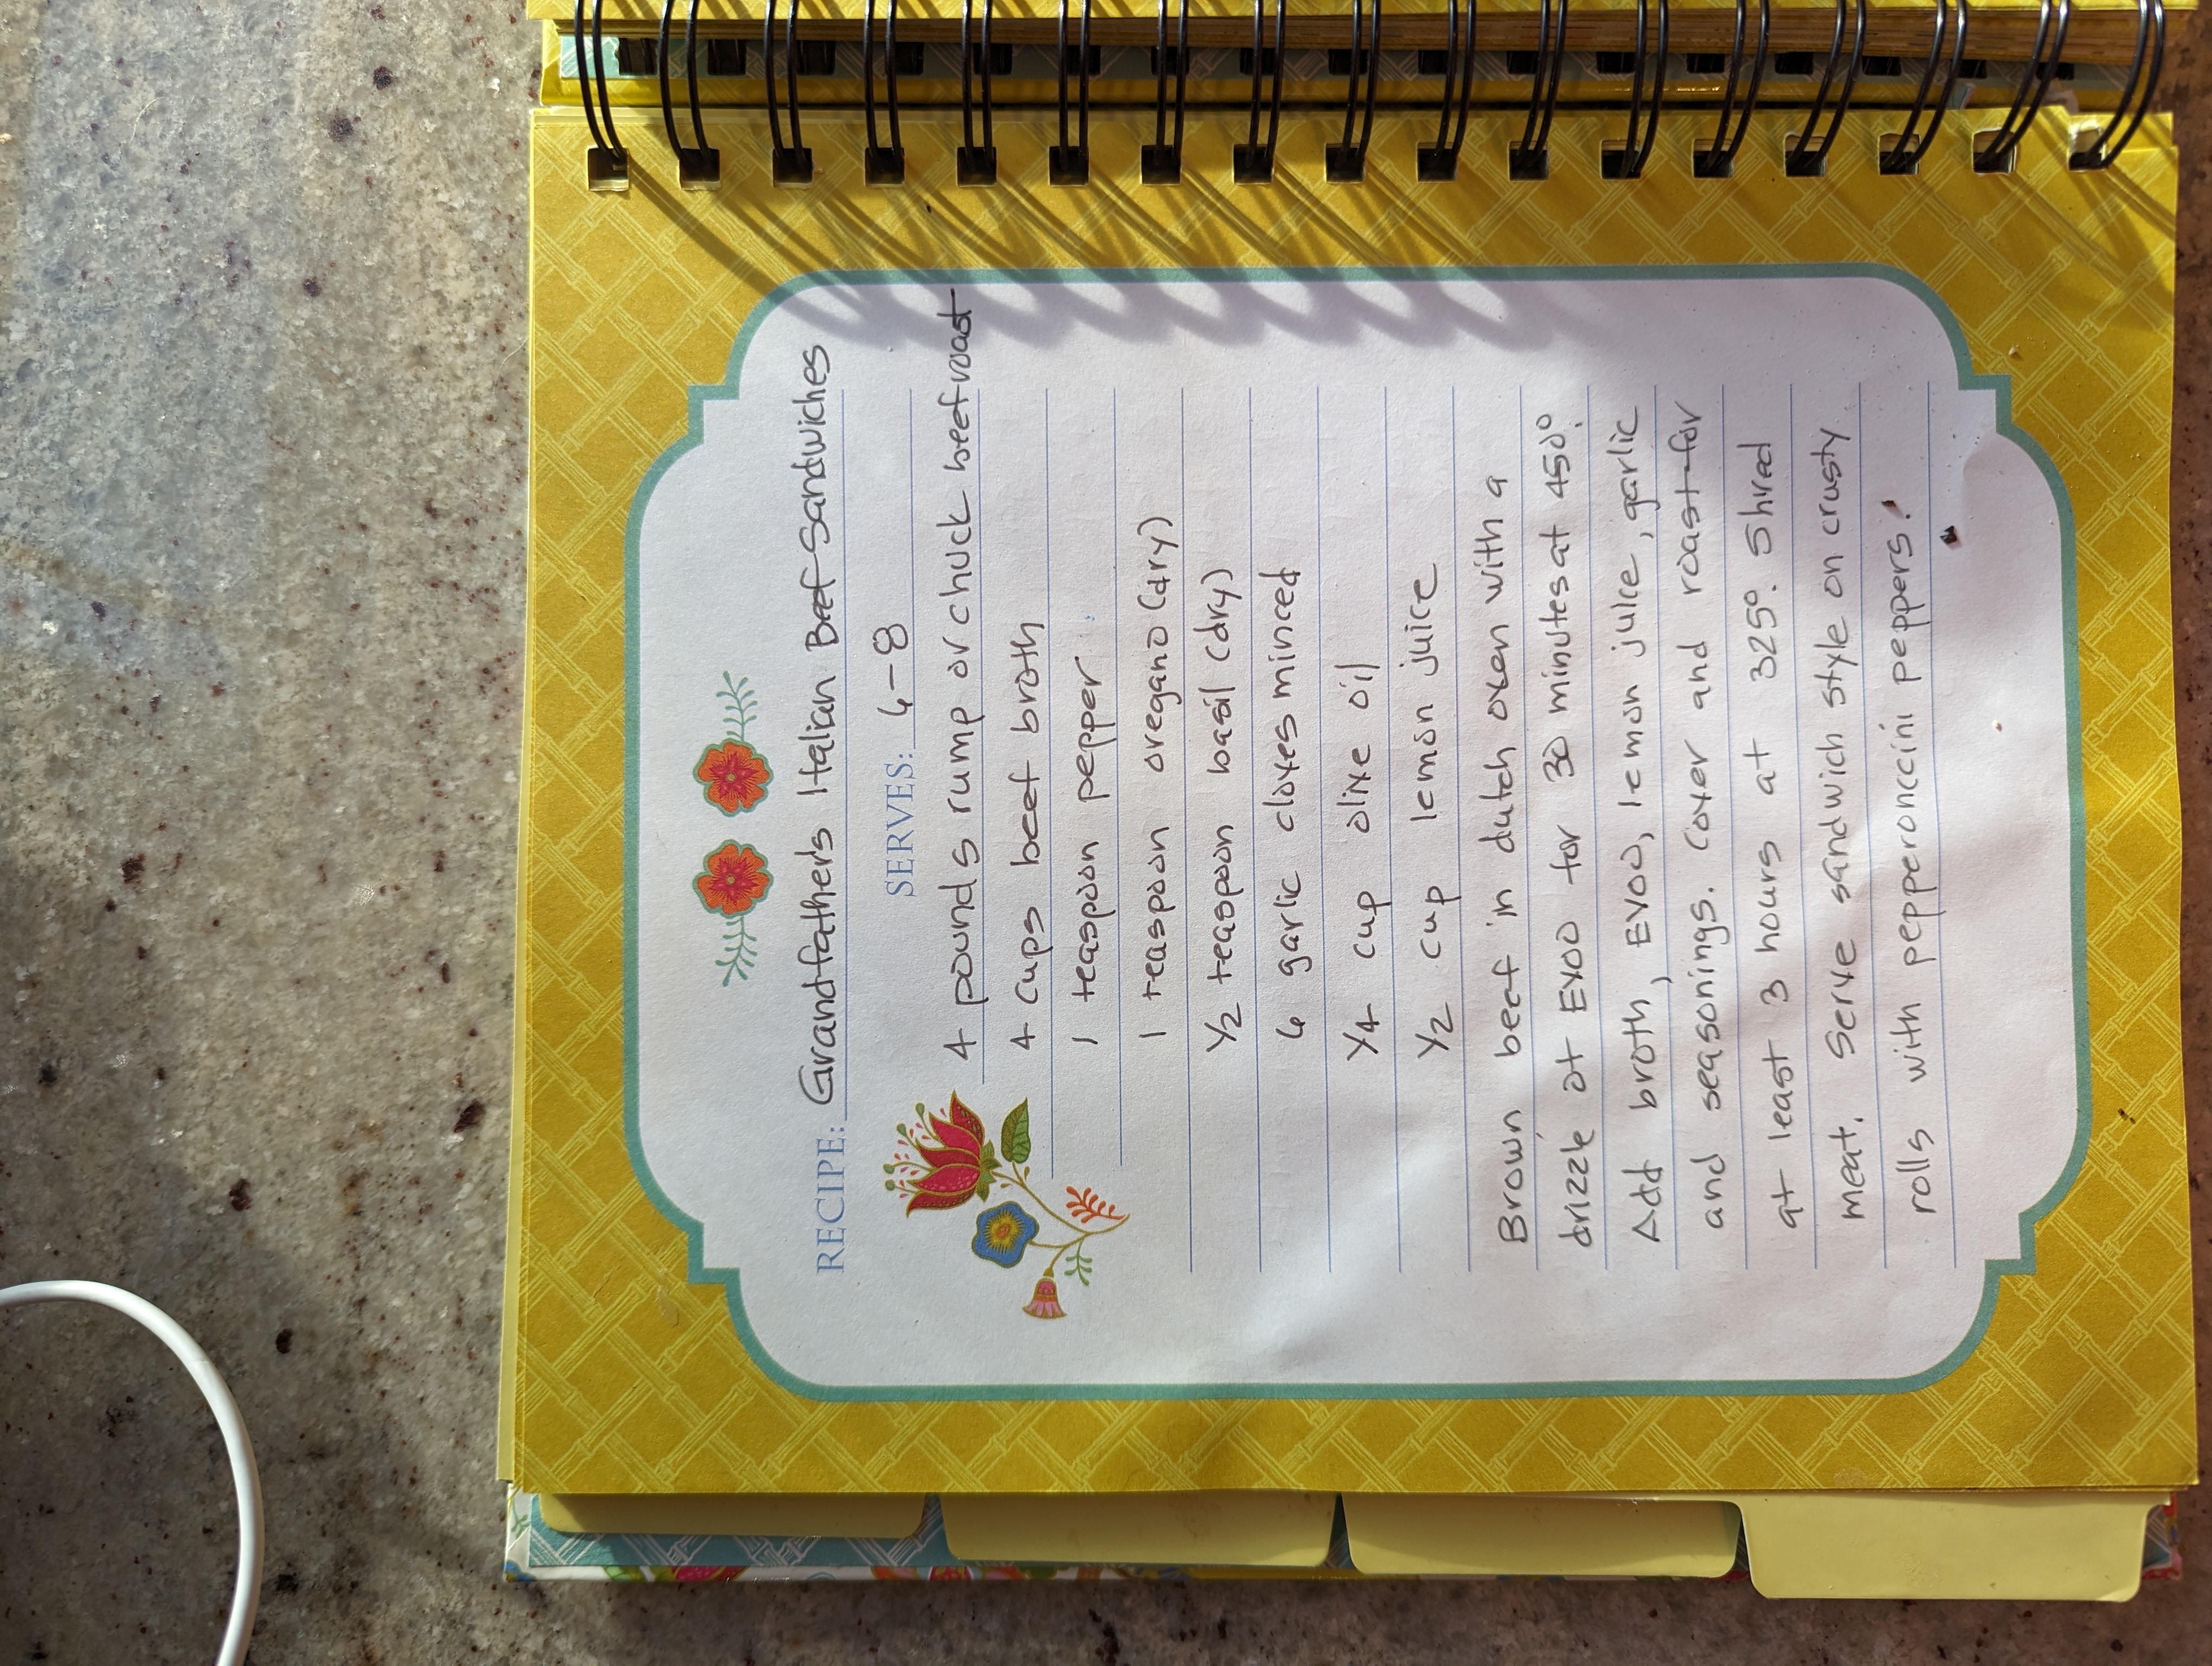 RECIPE: Grandfather's Italian Beef Sandwiches
SERVES: 6-8
4 pounds rump or chuck beef roast
4 cups beef broth
1 teaspoon pepper
1 teaspoon oregano (dry)
1/2 teaspoon basil (dry)
6 garlic cloves minced
1/4 cup olive oil
1/2 cup lemon juice
Brown beef in dutch oven with a
drizzle of EVOO for 30 minutes at 450°.
Add broth, EVOO, lemon juice, garlic
and seasonings. Cover and roast for
at least 3 hours at 325°. Shred
meat. Serve sandwich style on crusty
rolls with pepperonccini peppers!